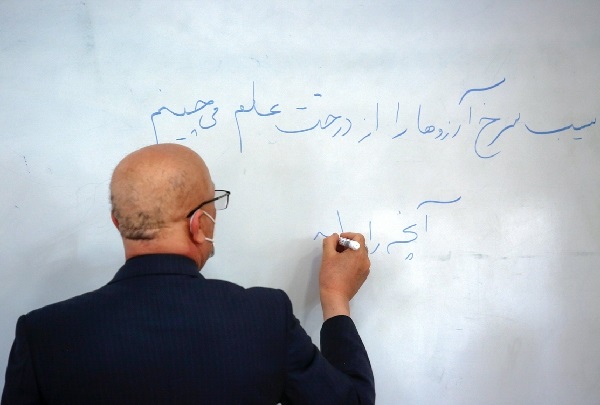 سیب سرخ آرزوها را از درخت علم می‌چینم
آنچه را